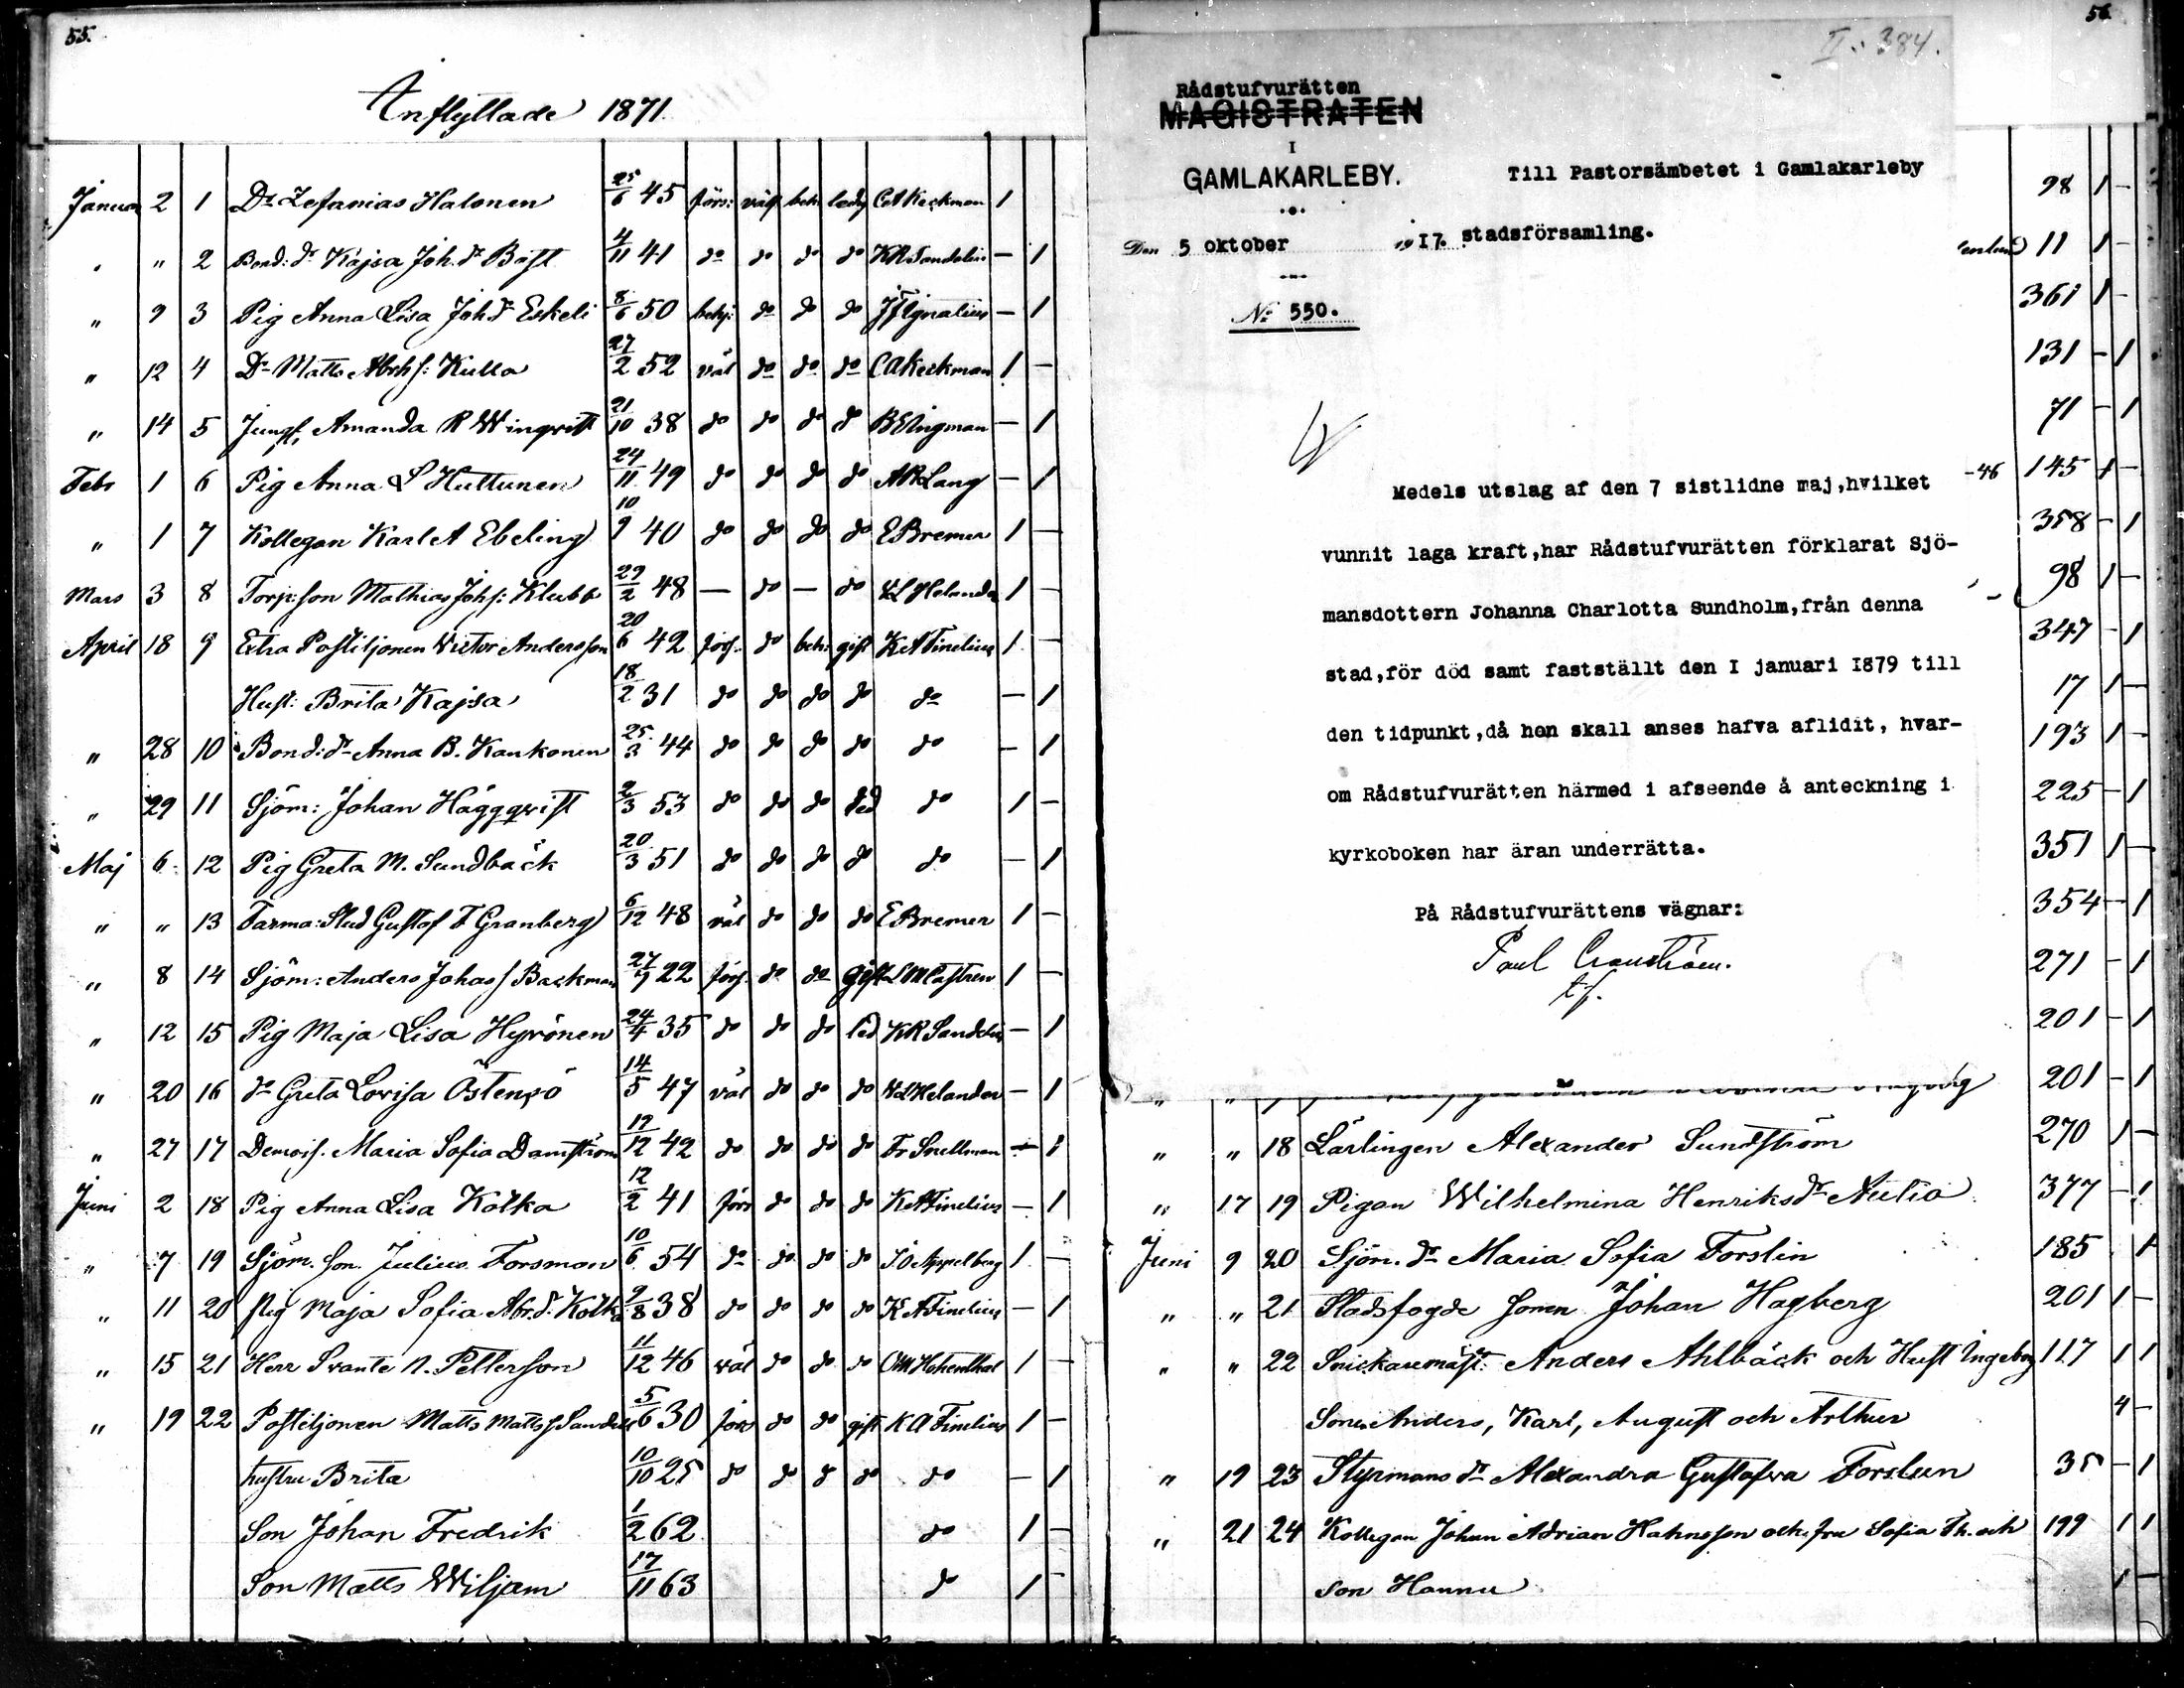 55.
Inflyttade 1871.
Januar 2 1 Dr Zefanias Halonen 25/6 45 förs: väl beh: ledig CAKeckman 1
" " 2 Bond: dr Kajsa Joh. dr Bäst 4/11 41 do do do do KRSandelius — 1
" 9 3 Pig Anna Lisa Joh dr Eskeli 8/6 50 behj: do do do JFIgnatius — 1
" 12 4 Dr Matts Abrhs: Kulla 27/2 52 väl do do do CAKeckman 1 —
" 14 5 Jungf. Amanda R Winqvist 21/10 38 do do do do BEIngman — 1
Febr 1 6 Pig Anna L Huttunen 24/11 49 do do do do ARLang — 1
" 1 7 Kollegan Karl A Ebeling 10/9 40 do do do do EBremer 1 —
Mars 3 8 Torp:son Mathias Johs: Klubb 29/2 48 — do — do Helander 1 —
April 18 9 Extra Postiljonen Victor Andersson 20/6 42 förs. do beh. gift KAFinelius 1 —
Hust: Brita Kajsa 18/2 31 do do do do do — 1
" 28 10 Bond: dr Anna B. Kankonen 25/3 44 do do do do do — 1
" 29 11 Sjöm: Johan Häggqvist 2/3 53 do do do led do 1 —
Maj 6 12 Pig Greta M. Sundbäck 20/3 51 do do do do do — 1
" " 13 Farma: Stud Gustaf F Granberg 6/12 48 väl do do do EBremer 1 —
" 8 14 Sjöm: Anders Johass Backman 27/9 22 förs. do do gift LMCastren 1 —
" 12 15 Pig Maja Lisa Hyvönen 24/4 35 do do do led KRSandelius — 1
" 20 16 do Greta Lovisa Östensö 14/5 47 väl do do do Helander — 1
" 27 17 Demois. Maria Sofia Damström 17/12 42 do do do do Fr Snellman — 1
Juni 2 18 Pig Anna Lisa Kolka 12/2 41 förs do do do KAFinelius — 1
" 7 19 Sjöm. son Julius Forsman 10/6 54 do do do do Appelberg 1 —
" 11 20 Pig Maja Sofia Abr.d. Kolka 9/8 38 do do do do KAFinelius — 1
" 15 21 Herr Svante N. Petterson 11/12 46 väl do do do Hohenthal 1 —
" 19 22 Postiljonen Matts Mattss Sandell 5/6 30 förs do do gift KAFinelius 1 —
hustru Brita 10/10 25 do do do do do — 1
Son Johan Fredrik 1/2 62 do 1 —
Son Matts Wiljam 17/11 63 do 1 —
56.
II.: 384.
Rådstufvurätten
MAGISTRATEN
I
GAMLAKARLEBY.
Till Pastorsämbetet i Gamlakarleby
Den 5 oktober 1917. stadsförsamling.
No 550.
Medels utslag af den 7 sistlidne maj,hvilket
vunnit laga kraft,har Rådstufvurätten förklarat Sjö-
mansdottern Johanna Charlotta Sundholm,från denna
stad,för död samt fastställt den I januari I879 till
den tidpunkt,då hon skall anses hafva aflidit, hvar-
om Rådstufvurätten härmed i afseende å anteckning i
kyrkoboken har äran underrätta.
På Rådstufvurättens vägnar:
Paul Cronström.
t.f.
98 1 —
11 1 —
361 1 —
131 — 1
71 — 1
-46 145 1 —
358 — 1
98 1 —
347 — 1
17 1 —
193 1 —
225 — 1
351 1 —
354 — 1
271 — 1
201 — 1
201 — 1
" " 18 Lärlingen Alexander Sundström 270 1 —
" 17 19 Pigan Wilhelmina Henriksdr Aulio 377 — 1
Juni 9 20 Sjöm. dr Maria Sofia Forslin 185 1
" " 21 Stadsfogde sonen Johan Hagberg 201 1 —
" " 22 Snickaremäst: Anders Ahlbäck och Hust Ingeborg 117 1 1
Söner Anders, Karl, August och Arthur 4 —
" 19 23 Styrmans dr Alexandra Gustafva Forslun 35 — 1
" 21 24 Kollegan Johan Adrian Hahnsson och fru Sofia Th. och 199 1 1
son Hannu 1 —